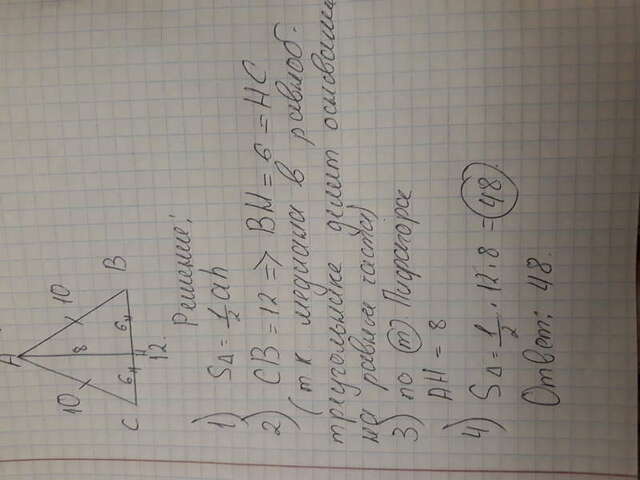 A
10
10
8
C
6
H
6
B
12.
Решение:
1) S△ = 1/2 ah
2) CB = 12 => BH = 6 = HC
(т к медиана в равноб.
треугольнике делит основание
на равные части)
3) по т Пифагора
AH = 8
4) S△ = 1/2 · 12 · 8 = 48.
Ответ: 48.